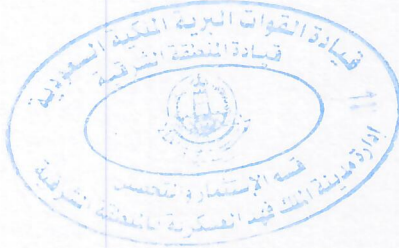 قيادة القوات البرية الملكية السعودية
قيادة المنطقة الشرقية
قسم الإستثمار والتخصيص
إدارة مدينة الملك فهد العسكرية بالمنطقة الشرقية